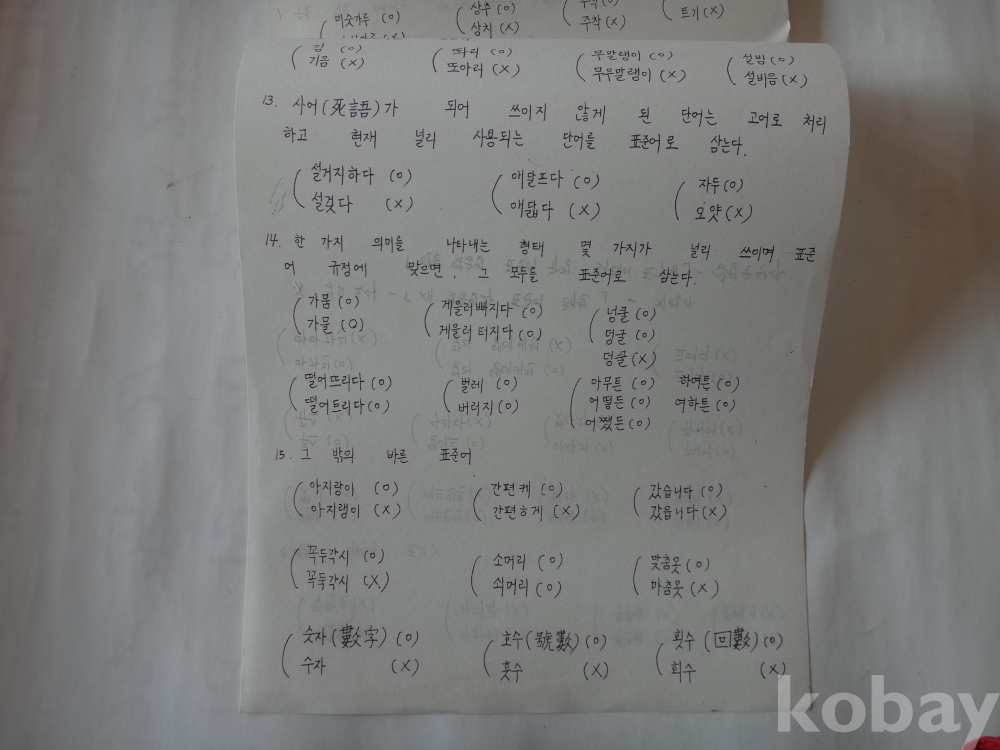 미숫가루 (O) 상추 (O)
상치 (X) 주책 (O) 주착 (X) 트기 (X)
김 (O) 또아리 (X) 무말랭이 (O) 설빔 (O)
기음 (X) 무우말랭이 (X) 설비음 (X)
13. 사어(死語)가 되어 쓰이지 않게 된 단어는 고어로 처리
하고 현재 널리 사용되는 단어를 표준어로 삼는다.
설거지하다 (O) 애달프다 (O) 자두(O)
설겆다 (X) 애닯다 (X) 오얏(X)
14. 한 가지 의미를 나타내는 형태 몇 가지가 널리 쓰이며 표준
어 규정에 맞으면, 그 모두를 표준어로 삼는다.
가뭄 (O) 게을러빠지다 (O) 넝쿨 (O)
가물 (O) 게을러터지다 (O) 덩굴 (O)
덩쿨 (X)
떨어뜨리다 (O) 벌레 (O) 아무튼 (O) 하여튼 (O)
떨어트리다 (O) 버러지 (O) 어떻든 (O) 여하튼 (O)
어쨌든 (O)
15. 그 밖의 바른 표준어
아지랑이 (O) 간편케 (O) 갔습니다 (O)
아지랭이 (X) 간편ㅎ게 (X) 갔읍니다 (X)
꼭두각시 (O) 소머리 (O) 맞춤옷 (O)
꼭둑각시 (X) 쇠머리 (O) 마춤옷 (X)
숫자(數字) (O) 호수(號數) (O) 횟수 (回數) (O)
수자 (X) 홋수 (X) 회수 (X)
kobay